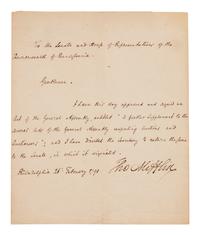 To the Senate and House of Representatives of the
Commonwealth of Pennsylvania.
Gentlemen.
I have this day approved and signed an
Act of the General Assembly, entitled "A further supplement to the
several Acts of the General Assembly respecting Elections and
and I have directed the Secretary to return the same
to the Senate, in which it originated.
Philadelphia February
Tho Mifflin